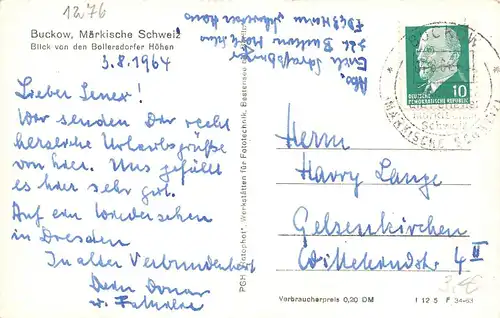 1276
Buckow, Märkische Schweiz
Blick von den Bollersdorfer Höhen
3.8.1964
Lieber Senex!
Wir senden Dir recht
herzliche Urlaubsgrüße
von hier. Uns gefällt
es hier sehr gut.
Auf ein Wiedersehen
in Dresden
In alter Verbundenheit
Dein Donar
u. Familie
Abs.
Erich
z.Zt. Buckow
PGH "Fotophot", Werkstätten für Fototechnik,
BUCKOW
MÄRKISCHE SCHWEIZ
10
DEUTSCHE
DEMOKRATISCHE REPUBLIK
Herrn
Harry Lange
Gelsenkirchen
4 II
3,-€
Verbraucherpreis 0,20 DM
I 12 5 F 34-63